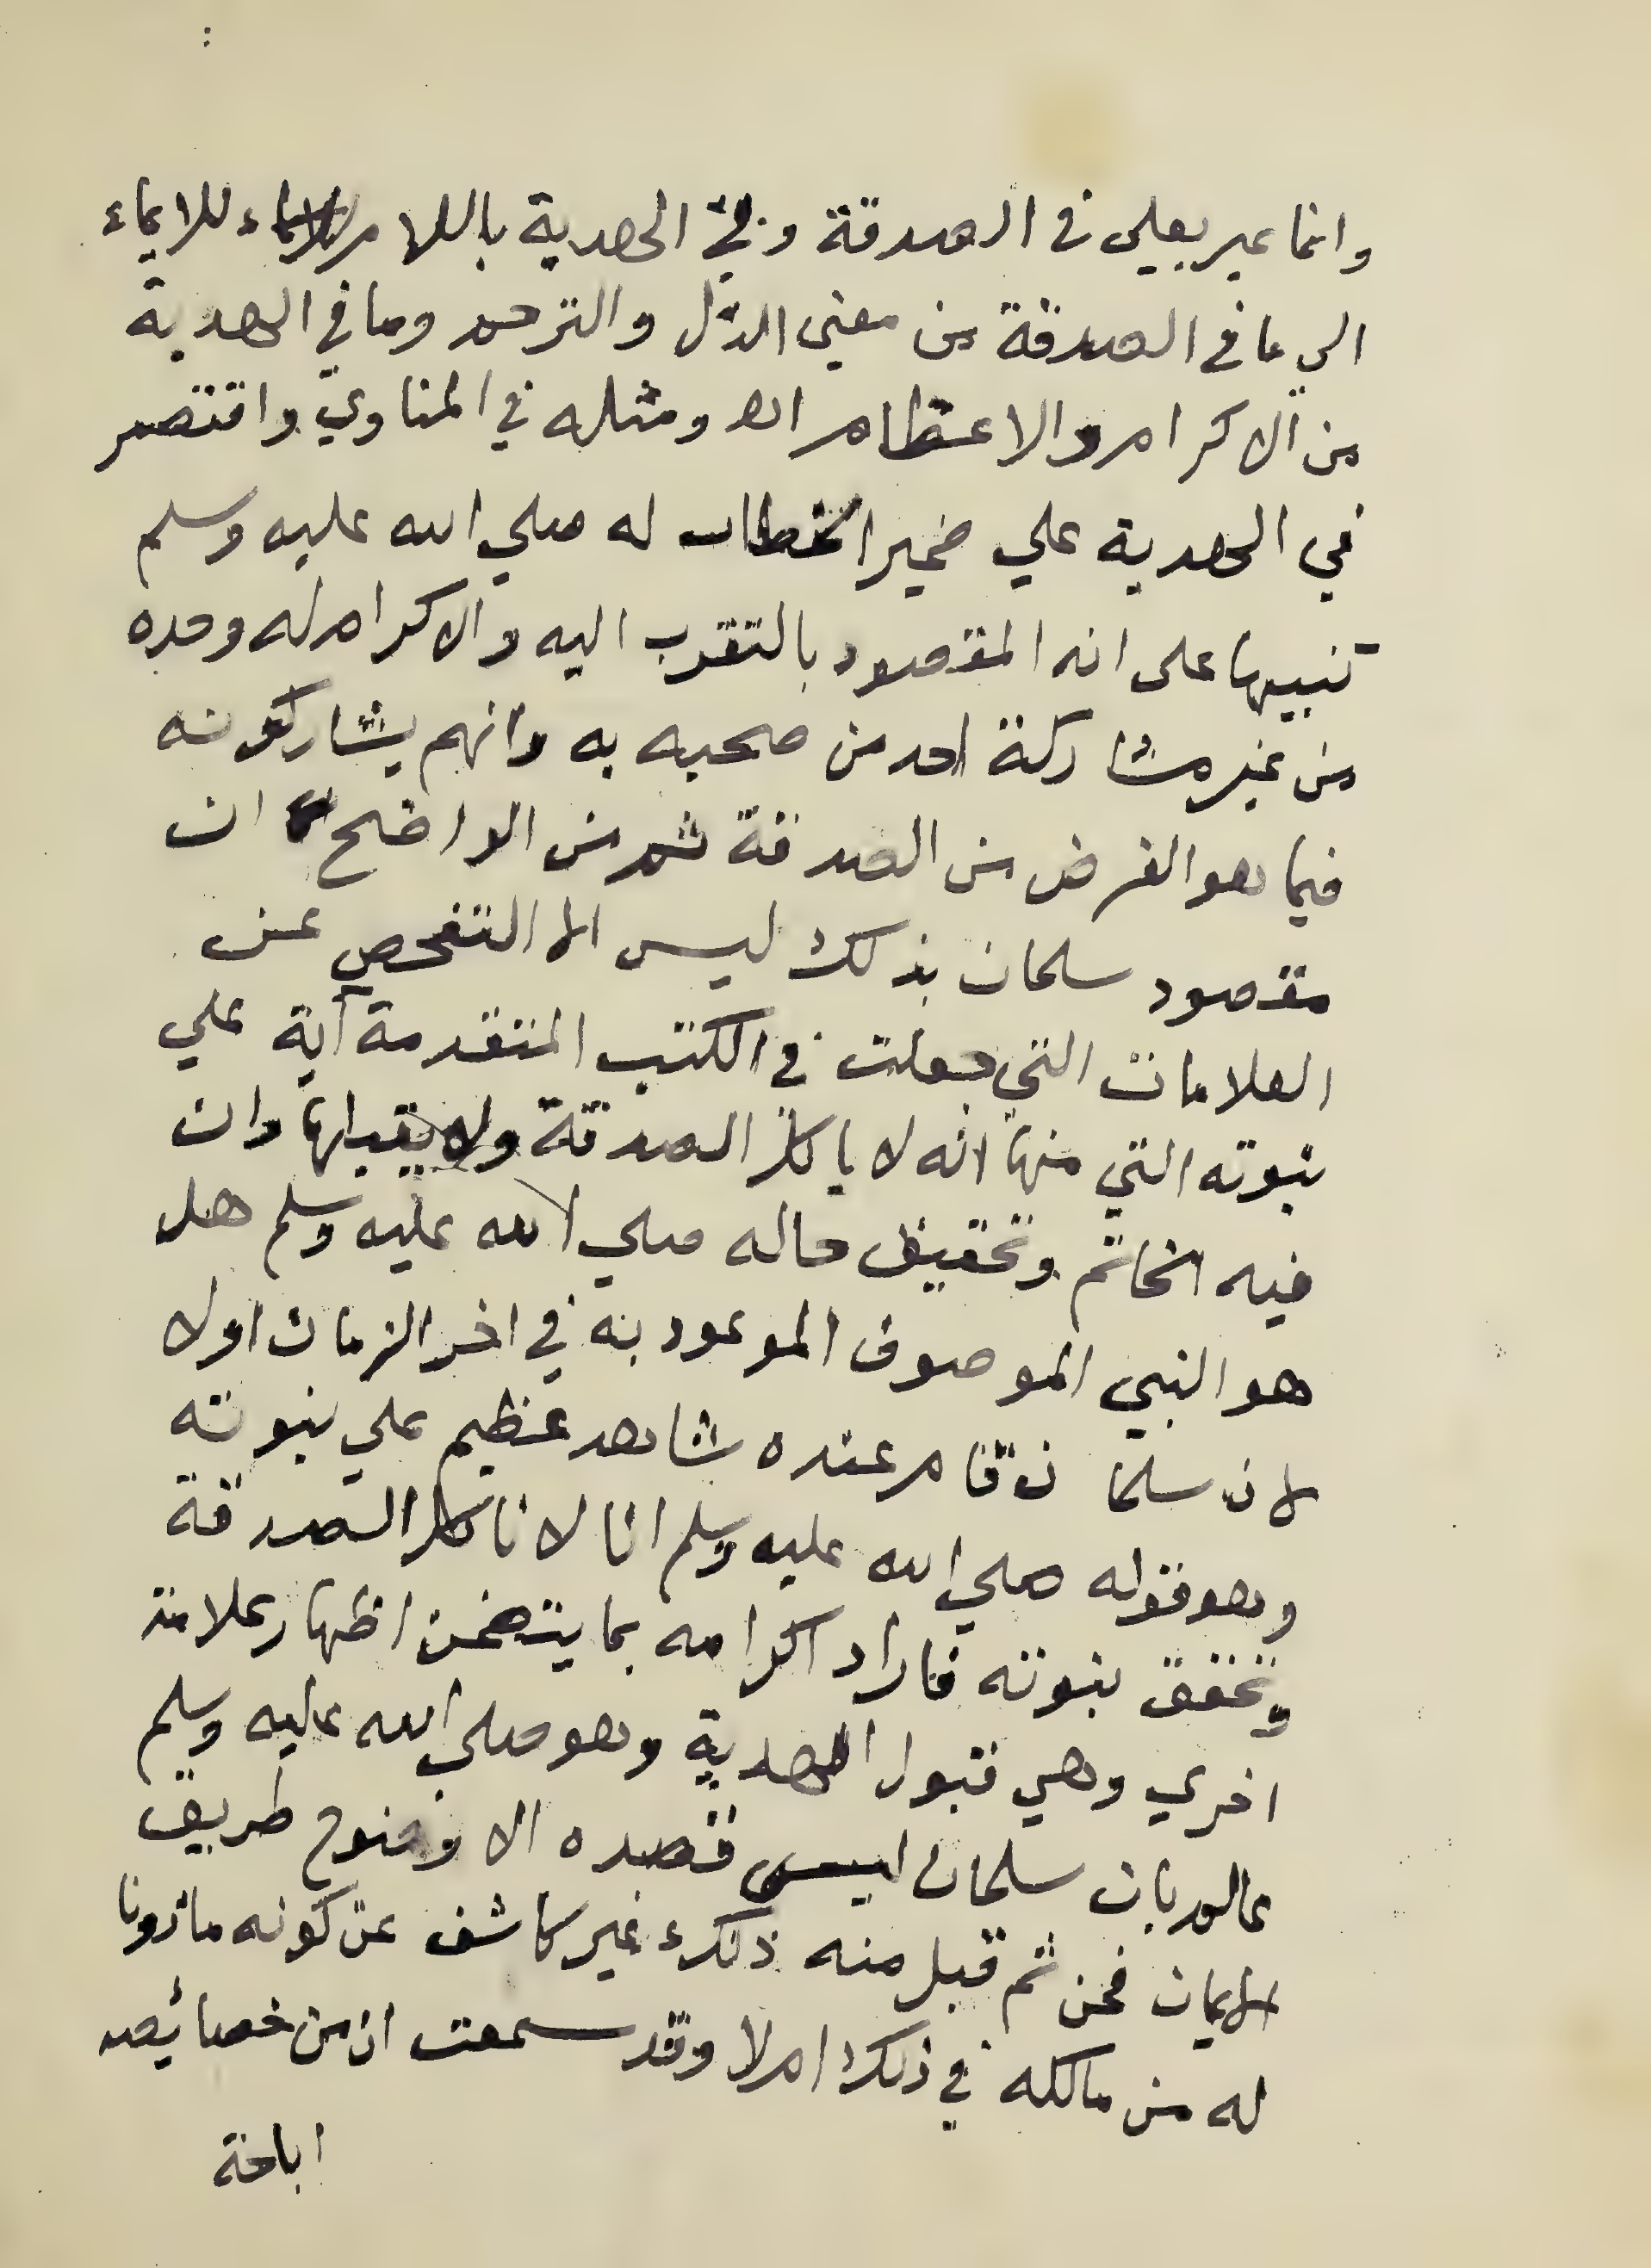 وانما عبر بعلى في الصدقة وفي الهدية باللام للايماء
الي ما في الصدقة من معنى الذل والترحم وما في الهدية
من الاكرام والاعظام اه ومثله في المناوي واقتصر
في الهدية علي ضمير الخطاب له صلي الله عليه وسلم
تنبيها على انه المقصود بالتقرب اليه والاكرام له وحده
من غير مشاركة احد من صحبه به وانهم يشاركونه
فيما هو الغرض من الصدقة ثم من الواضح ان
مقصود سلمان بذلك ليس الا التفحص عن
العلامات التي جعلت في الكتب المتقدمة آية علي
نبوته التي منها انه لا ياكل الصدقة ولا يقبلها وان
فيه الخاتم وتحقيق حاله صلي الله عليه وسلم هل
هو النبي الموصوف الموعود به في اخر الزمان اولا
لان سلمان قام عنده شاهد عظيم علي نبوته
وهو قوله صلي الله عليه وسلم انا لا ناكل الصدقة
وتحقق نبوته فاراد اكرامه بما يتضمن اظهار علامة
اخري وهي قبول الهدية وهو صلي الله عليه وسلم
عالم بان سلمان ليس قصده الا وضوح طريق
الايمان فمن ثم قبل منه ذلك غير كاشف عن كونه ماذونا
له من مالكه في ذلك ام لا وقد سمعت ان من خصائصه
اباحة